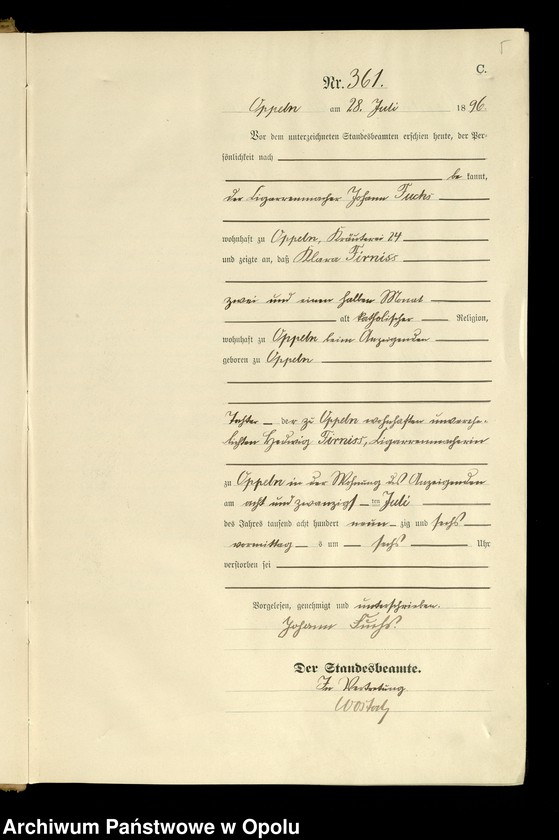 C.
Nr. 361.
Oppeln am 28. Juli 1896.
Vor dem unterzeichneten Standesbeamten erschien heute, der Per-
sönlichkeit nach
be kannt,
der Cigarrenmacher Johann Fuchs
wohnhaft zu Oppeln, Kräuterei 24
und zeigte an, daß Klara Firniss
zwei und einen halben Monat
alt katholischer Religion,
wohnhaft zu Oppeln beim Anzeigenden
geboren zu Oppeln
Tochter der zu Oppeln wohnhaften unverehe-
lichten Hedwig Firniss, Cigarrenmacherin
zu Oppeln in der Wohnung des Anzeigenden
am acht und zwanzigsten Juli
des Jahres tausend acht hundert neun zig und sechs
vormittags um sechs Uhr
verstorben sei
Vorgelesen, genehmigt und unterschrieben.
Johann Fuchs.
Der Standesbeamte.
In Vertretung
Archiwum Państwowe w Opolu